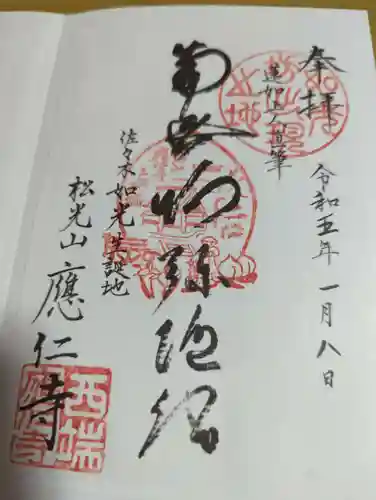 奉拝 令和五年一月八日
蓮如上人直筆
南无阿弥陀佛
佐々木如光生誕地
松光山應仁寺
西端